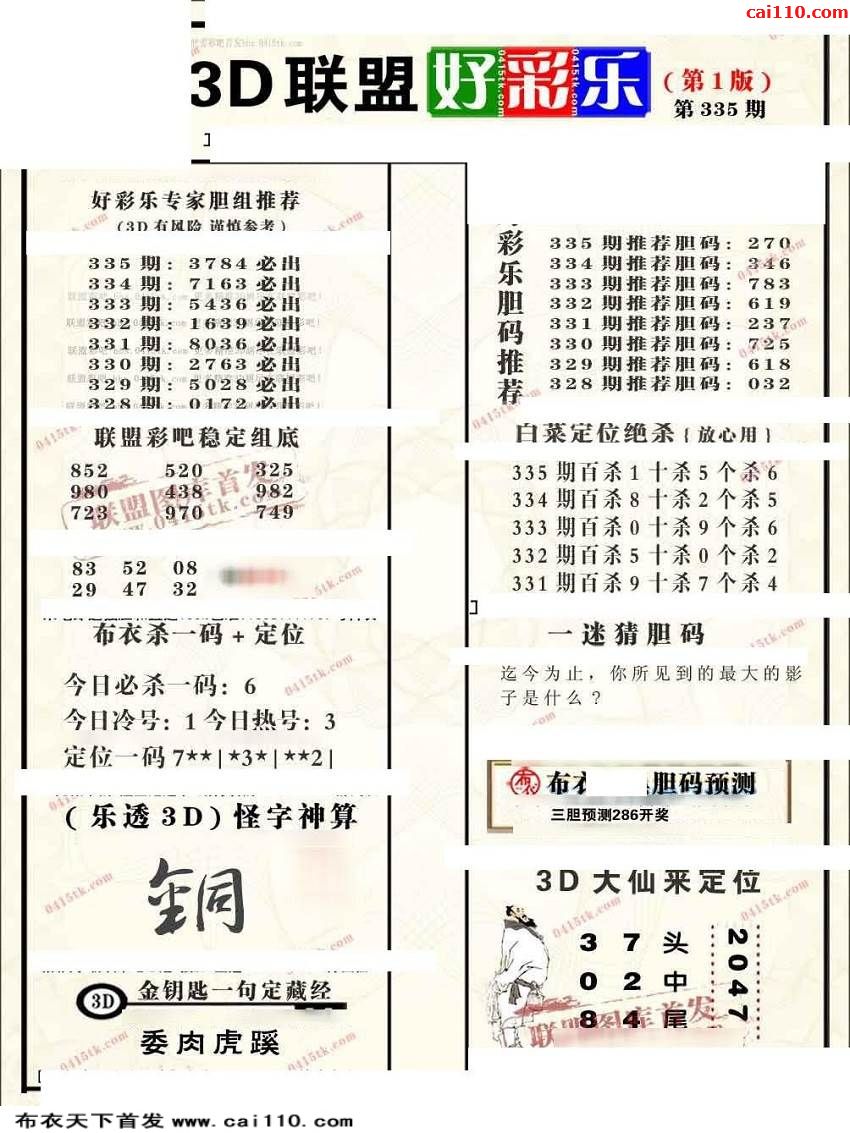 cai110.com
3D联盟好彩乐(第1版)
第335期
好彩乐专家胆组推荐
(3D有风险 谨慎参考)
335期: 3784必出
334期: 7163必出
333期: 5436必出
332期: 1639必出
331期: 8036必出
330期: 2763必出
329期: 5028必出
328期: 0172必出
联盟彩吧稳定组底
852 520 325
980 438 982
723 970 749
83 52 08
29 47 32
布衣杀一码+定位
今日必杀一码: 6
今日冷号: 1 今日热号: 3
定位一码7**|*3*|**2|
(乐透3D)怪字神算
3D 金钥匙一句定藏经
委肉虎蹊
彩乐胆码推荐
335期推荐胆码: 270
334期推荐胆码: 346
333期推荐胆码: 783
332期推荐胆码: 619
331期推荐胆码: 237
330期推荐胆码: 725
329期推荐胆码: 618
328期推荐胆码: 032
白菜定位绝杀{放心用}
335期百杀1十杀5个杀6
334期百杀8十杀2个杀5
333期百杀0十杀9个杀6
332期百杀5十杀0个杀2
331期百杀9十杀7个杀4
一迷猜胆码
迄今为止，你所见到的最大的影
子是什么？
布衣 胆码预测
三胆预测286开奖
3D大仙来定位
3 7 头
0 2 中
8 4 尾
2047
联盟图库首发
0415tk.com
布衣天下首发 www.cai110.com